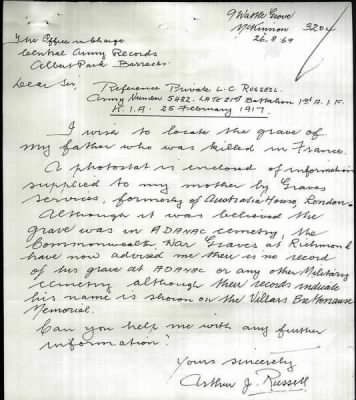 9 Wattle Grove
McKinnon 3204
26.8.69
The Officer in Charge
Central Army Records
Albert Park Barracks
Dear Sir,
Reference Private L.C. RUSSELL
Army Number 5482. LATE 21st Battalion 1st A.I.F.
K.I.A. 25 February 1917
I wish to locate the grave of
my father who was killed in France.
A photostat is enclosed of information
supplied to my mother by Graves
Services, formerly of Australia House, London.
Although it was believed the
grave was in ADANAC cemetery, the
Commonwealth War Graves at Richmond
have now advised me there is no record
of his grave at ADANAC or any other Military
cemetery although their records indicate
his name is shown on the Villers Bretonneux
Memorial.
Can you help me with any further
information?
Yours sincerely
Arthur J. Russell